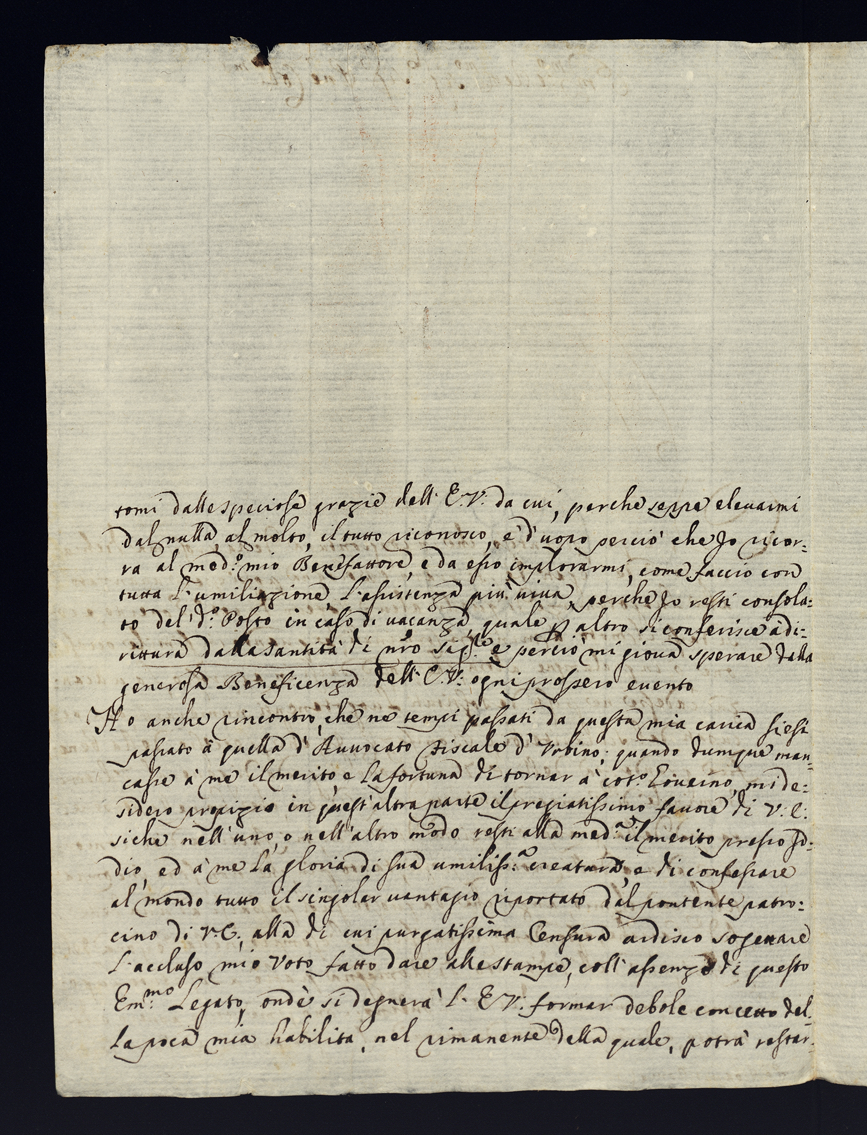 tomi dalle speciose grazie dell' E.V. da cui, perche seppe elevarmi
dal nulla al molto, il tutto riconosco, è d'uopo perciò che Jo ricor=
ra al med.º mio Benefattore, e da esso implorarmi, come faccio con
tutta l'umiliazione l'assistenza più viva, perche Jo resti consola=
to del d.º Posto in caso di vacanza quale p altro si conferisce adi=
rittura dalla Santità di nrõ Sig.re e perciò mi giova sperare dalla
generosa Beneficenza dell' E.V. ogni prospero evento
Ho anche rincontro, che ne tempi passati da questa mia carica siesi
passato à quella d'Avvocato fiscale d'Urbino; quando dumque man=
casse à me il merito e la fortuna di tornar à cot.º Governo, mi de=
sidero propizio in quest'altra parte il pregiatissimo favore di V.E.
siche nell'uno, o nell'altro modo resti alla med.ª il merito presso Jd=
dio, ed à me la gloria di sua umiliss.ª creatura, e di confessare
al mondo tutto il singolar vantagio riportato dal pontente patro=
cino di V.E., alla di cui purgatissima Censura ardisco sogettare
l'accluso mio Voto fatto dare alle stampe, coll'assenza di questo
Em.mo Legato, onde si degnerà l'E.V. formar debole concetto del=
la poca mia habilita, nel rimanente della quale, potrà restar=